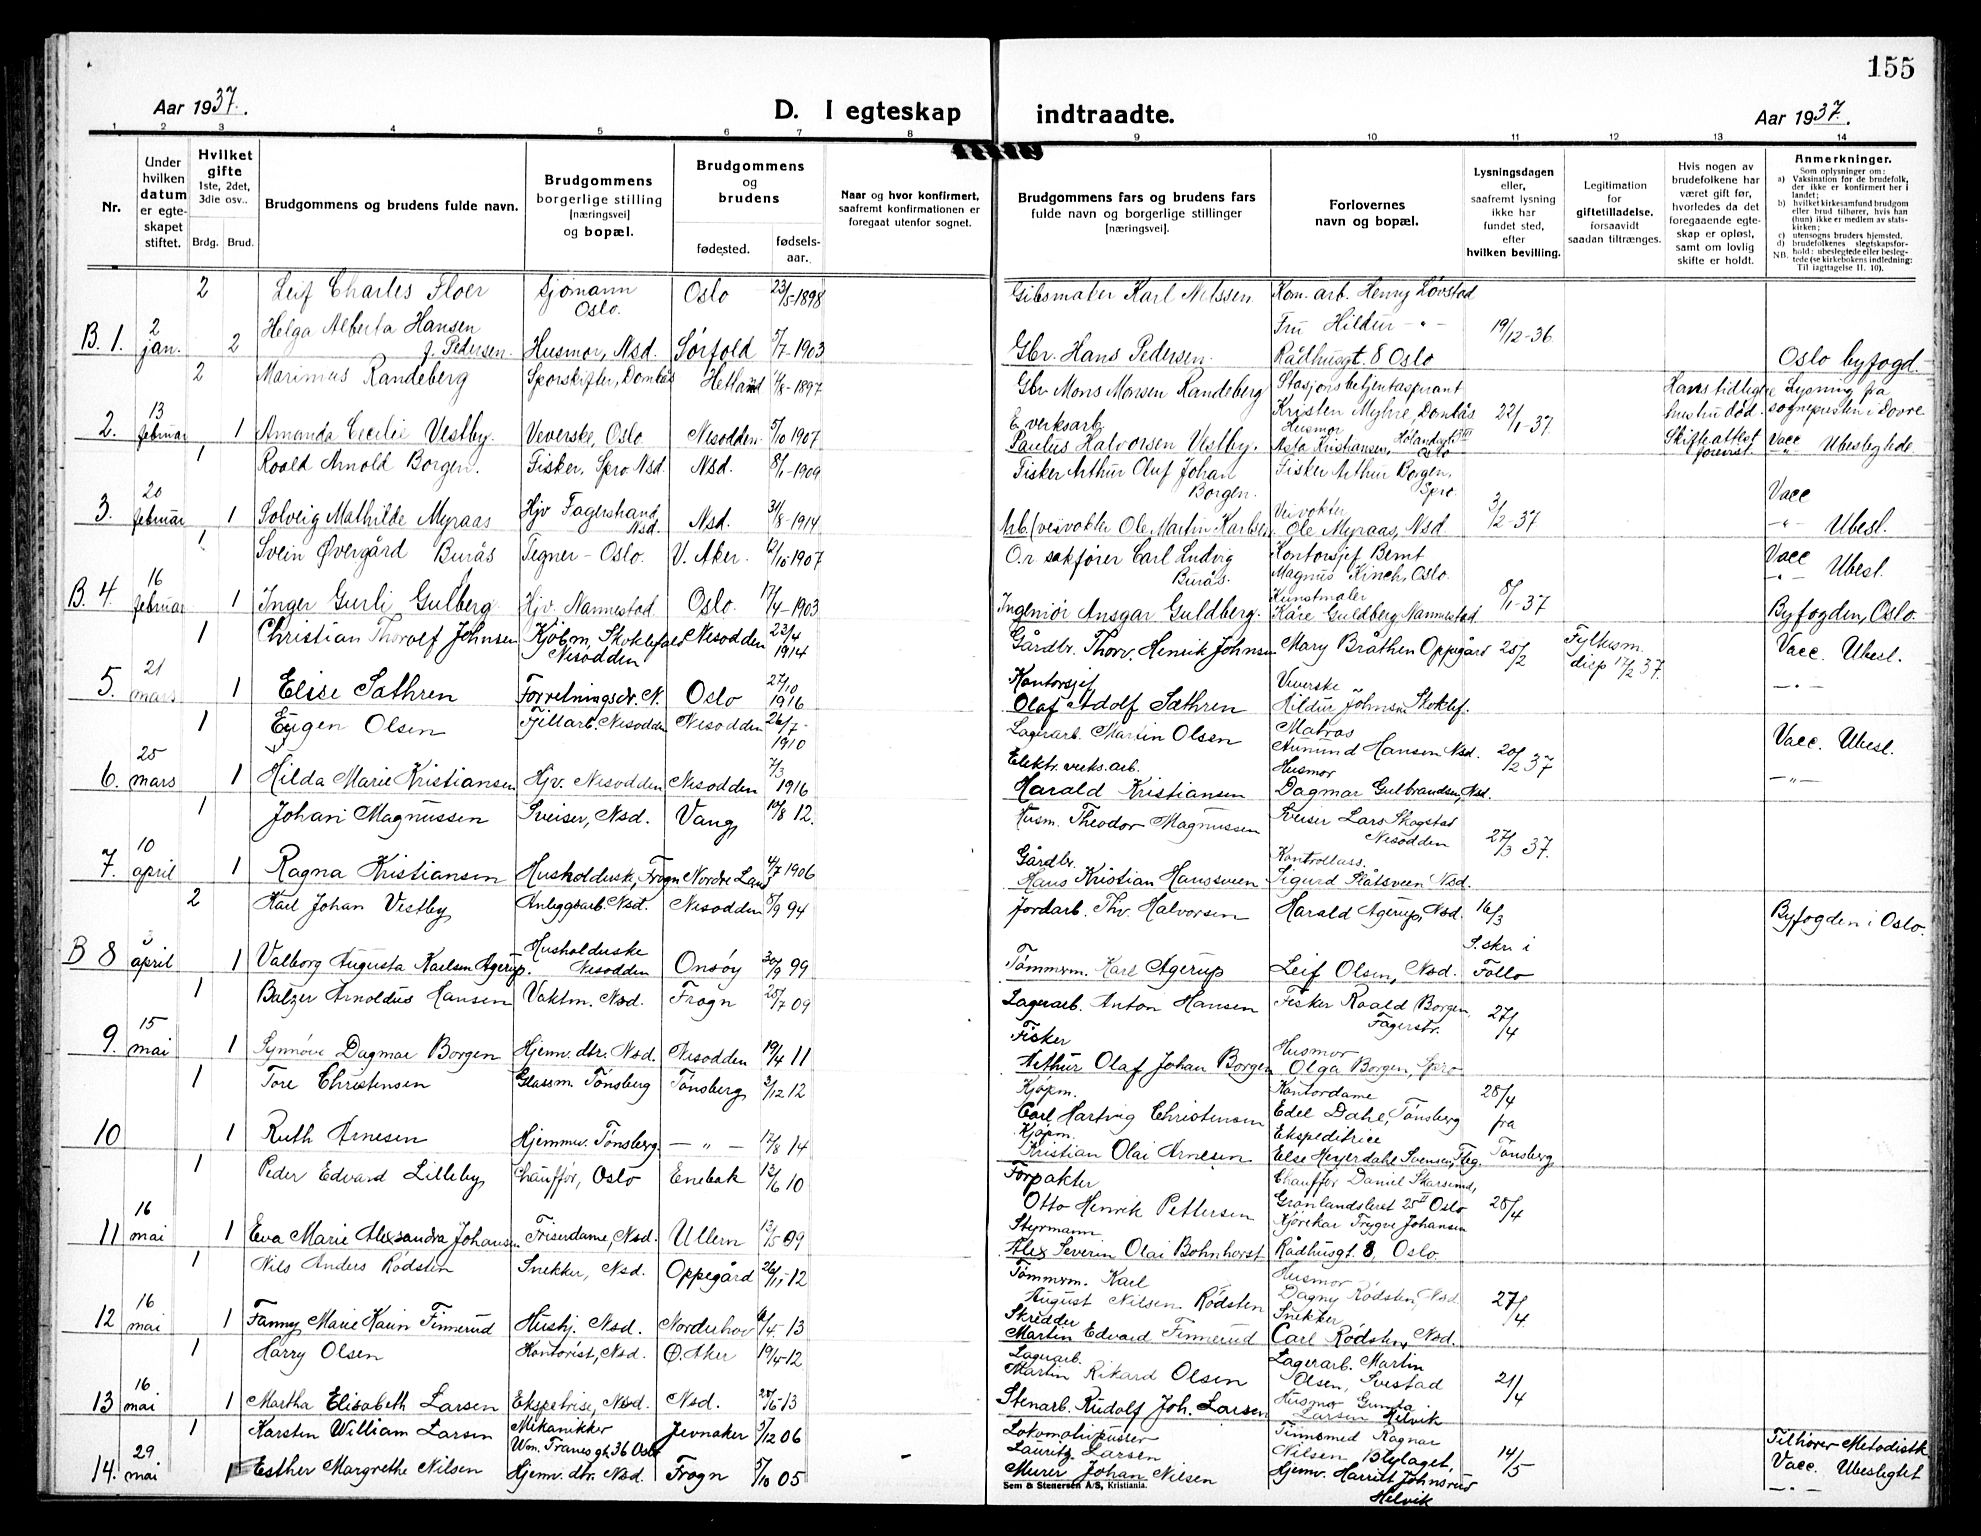 155
Aar 1937.
D. I egteskap indtraadte.
Aar 1937.
1 2 3 4 5 6 7 8 9 10 11 12 13 14
Nr.
Under hvilken datum er egteskapet stiftet.
Hvilket gifte 1ste, 2det, 3die osv..
Brdg. Brud.
Brudgommens og brudens fulde navn.
Brudgommens borgerlige stilling [næringsvei] og bopæl.
Brudgommens og brudens
fødested.
fødselsaar.
Naar og hvor konfirmert, saafremt konfirmationen er foregaat utenfor sognet.
Brudgommens fars og brudens fars fulde navn og borgerlige stillinger [næringsvei].
Forlovernes navn og bopæl.
Lysningsdagen eller, saafremt lysning ikke har fundet sted, efter hvilken bevilling.
Legitimation for giftetilladelse, forsaavidt saadan tiltrænges.
Hvis nogen av brudefolkene har været gift før, hvorledes da det foregaaende egteskap er opløst, samt om lovlig skifte er holdt.
Anmerkninger.
Som oplysninger om:
a) Vaksination for de brudefolk, der ikke er konfirmert her i landet;
b) hvilket kirkesamfund brudgom eller brud tilhører, hvis han (hun) ikke er medlem av statskirken;
c) utensogns bruders hjemsted.
d) brudefolkenes slegtskapsforhold: ubeslegtede eller beslegtede (se kirkebokens indledning:
NB. Til iagttagelse II. 10).
2 Leif Charles Floer Sjømann Oslo. Oslo 23/5-1898 Karl Nilssen Kom. arb. Henry Løvstad
B. 1. 2 jan. 2 Helga Alberta Hansen f. Pedersen. Husmor, Nsd. Sørfold 5/7-1903 Gbr. Hans Pedersen. Fru Hildur -"- Rådhusgt. 8 Oslo 19/12-36 Oslo byfogd.
2 Marinus Randeberg Sporskifter, Dombås Hetland /8-1897 Gbr Mons Monsen Randeberg Stasjonsbetjentaspirant Kristen Myhre, Dombås 22/1-37 Hans tidligere hustru død. Skifteattest forevist. Lysning fra sognepresten i Dovre
2. 13 februar 1 Amanda Cecilie Vestby. Veverske, Oslo Nesodden. 5/10 1907 E. verksarb. Paulus Halvorsen Vestby. Husmor Asta Kristiansen, Oslo Vacc -"- Ubeslegtede
1 Roald Arnold Borgen. Fisker, Spro Nsd. Nsd. 8/1-1909 Fisker Arthur Oluf Johan Borgen. Fisker Arthur Borgen, Spro. 3/2-37 Vacc
3. 20 februar 1 Solveig Mathilde Myraas Hjv Fagerstrand Nsd. Nsd. 31/8-1914 veivokter Ole Martin Karlsen Veivokter Ole Myraas, Nsd. -"- Ubesl.
1 Svein Øvergård Burås Tegner - Oslo. V. Aker. /10-1907 O.r. sakfører Carl Ludvig Burås. Kontorsjef Bernt Magnus Kinch, Oslo. 8/1-37 Vacc -"- Ubesl.
B. 4 16 februar 1 Inger Gurli Gulberg. Hjv. Nannestad Oslo. 17/4-1903 Ingeniør Ansgar Guldberg. Kunstmaler Kåre Guldberg Nannestad Byfogden, Oslo.
1 Christian Thorolf Johnsen Kjøbm, Skoklefald Nesodden Nesodden 23/4 1914 Gårdbr. Thorv. Henrik Johnsen Mary Bråthen Oppegård 25/2 Fylkesm. disp 17/2 37. Vacc. Ubesl.
5. 21 mars 1 Elise Sathren Forretningsdr. N. Oslo 27/10 1916 Kontorsjef Olaf Adolf Sathren Veverske Hildur Johnsen Skoklef. -"-
1 Eugen Olsen Fjellarb. Nesodden Nesodden 26/7-1910 Lagerarb. Martin Olsen Matros Aumund Hansen Nsd. 20/2 37 Vacc. Ubesl.
6. 25 mars 1 Hilda Marie Kristiansen Hjv. Nesodden Nesodden 7/3 1916 Elektr. verks. arb. Harald Kristiansen Husmor Dagmar Gulbrandsen, Nsd. -"-
1 Johan Magnussen Sveiser, Nsd. Vang 10/8 12. Husm. Theodor Magnussen Sveiser Lars Skogstad Nesodden 27/3 37.
7. 10 april 1 Ragna Kristiansen Husholdersk, Frogn Nordre Land 4/7 1906 Gårdbr. Hans Kristian Hansveen Kontrollass. Sigurd Slåtsveen Nsd.
2 Karl Johan Vestby Anleggsarb. Nsd. Nesodden 8/9 94 Jordarb. Thv. Halvorsen Harald Agerup, Nsd. 16/3 S.skr. i Follo Byfogden i Oslo.
B 8 3 april 1 Valborg Augusta Karlsen Agerup. Husholderske Nesodden Onsøy 30/9 99 Tømmerm. Karl Agerup Leif Olsen, Nsd.
1 Balzer Arnoldus Hansen Vaktm. Nsd. Frogn 25/7 09 Lagerarb. Anton Hansen Fisker Roald Borgen, Fagerstr. 27/4
9. 15 mai 1 Synnøve Dagmar Borgen Hjemv. dtr. Nsd. Nesodden 19/4 11 Fisker Arthur Olaf Johan Borgen Husmor Olga Borgen, Spro
1 Tore Christensen Glassm. Tønsberg Tønsberg 2/12 12 Kjøpm. Carl Hartvig Christensen Kontordame Edel Dahl, Tønsberg 28/4 fra Tønsberg
10 1 Ruth Arnesen Hjemmev. Tønsberg. -"- 17/8 14 Kjøpm. Kristian Olai Arnesen Ekspeditrice Else Heyerdahl Svensen, Tbg.
1 Peder Edvard Lilleby Chauffør, Oslo Enebak 12/6 10 Forpakter Otto Henrik Pettersen Chauffør Daniel Skarsund, Grønlandsleret 25 II Oslo 28/4
11 16 mai 1 Eva Marie Alexsandra Johansen Friserdame, Nsd. Ullern 13/5 09 Styrmann Alex Severin Olai Bohnhorst Kjørekar Trygve Johansen Rådhusgt. 8, Oslo.
1 Nils Anders Rødsten Snekker, Nsd. Oppegård 26/11-12 Tømmerm. Karl August Nilsen Rødsten Husmor Dagny Rødsten, Nsd 27/4
12 16 mai 1 Fanny Marie Karin Finnerud Hushj. Nsd. Norderhov /4-13 Skredder Martin Edvard Finnerud Snekker Carl Rødsten, Nsd.
1 Harry Olsen Kontorist, Nsd. Ø. Aker 19/4-12 Lagerarb. Martin Rikard Olsen Lagerarb. Martin Olsen, Svestad 21/4
13 16 mai 1 Martha Elisabeth Larsen Ekspetrise, Nsd. Nsd. 25/5-13 Stenarb. Rudolf Joh. Larsen Husmor Gunda Larsen Helvik
1 Karsten William Larsen Mekanikker Wm. Tranesgt. 36 Oslo Jevnaker 5/12 06 Lokomotivpusser Lauritz Larsen Tinnsmed Ragnar Nilsen Blylaget, 14/5 Tilhører Metodistk Vacc. Ubeslegtet
14. 29 mai 1 Esther Margrethe Nilsen Hjemv. dtr. Nsd. Frogn 5/10 05 Murer Johan Nilsen Hjemv. Harriet Johnsrud Helvik -"-
Sem & Stenersen A/S, Kristiania.